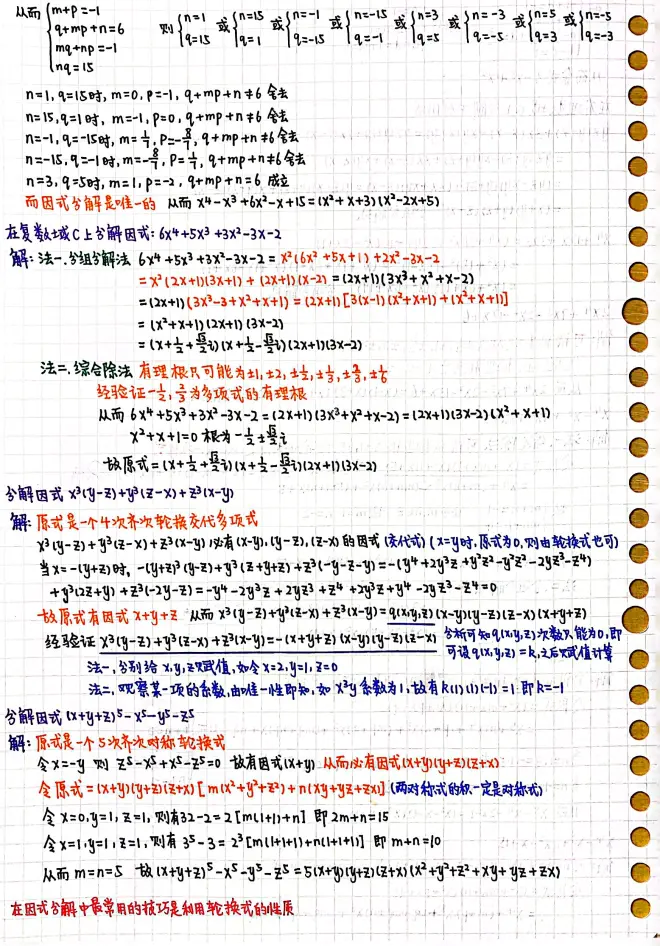 从而 { m+p=-1
q+mp+n=6
mq+np=-1
nq=15
则 { n=1 q=15 或 { n=15 q=1 或 { n=-1 q=-15 或 { n=-15 q=-1 或 { n=3 q=5 或 { n=-3 q=-5 或 { n=5 q=3 或 { n=-5 q=-3
n=1, q=15时, m=0, p=-1, q+mp+n≠6 舍去
n=15, q=1时, m=-1, p=0, q+mp+n≠6 舍去
n=-1, q=-15时, m=1/7, p=-8/7, q+mp+n≠6 舍去
n=-15, q=-1时, m=-8/7, p=1/7, q+mp+n≠6 舍去
n=3, q=5时, m=1, p=-2, q+mp+n=6 成立
而因式分解是唯一的 从而 x⁴-x³+6x²-x+15=(x²+x+3)(x²-2x+5)
在复数域C上分解因式: 6x⁴+5x³+3x²-3x-2
解: 法一.分组分解法 6x⁴+5x³+3x²-3x-2 = x²(6x²+5x+1)+2x²-3x-2
= x²(2x+1)(3x+1)+(2x+1)(x-2) = (2x+1)(3x³+x²+x-2)
= (2x+1)(3x³-3+x²+x+1) = (2x+1)[3(x-1)(x²+x+1)+(x²+x+1)]
= (x²+x+1)(2x+1)(3x-2)
= (x+1/2+√3/2 i)(x+1/2-√3/2 i)(2x+1)(3x-2)
法二.综合除法 有理根只可能为±1, ±2, ±1/2, ±1/3, ±2/3, ±1/6
经验证-1/2, 2/3为多项式的有理根
从而 6x⁴+5x³+3x²-3x-2=(2x+1)(3x³+x²+x-2)=(2x+1)(3x-2)(x²+x+1)
x²+x+1=0 根为 -1/2±√3/2 i
故原式=(x+1/2+√3/2 i)(x+1/2-√3/2 i)(2x+1)(3x-2)
分解因式 x³(y-z)+y³(z-x)+z³(x-y)
解: 原式是一个4次齐次轮换交代多项式
x³(y-z)+y³(z-x)+z³(x-y)必有(x-y),(y-z),(z-x)的因式(交代式)(x=y时,原式为0,则由轮换式也可)
当x=-(y+z)时, -(y+z)³(y-z)+y³(z+y+z)+z³(-y-z-y)=-(y⁴+2y³z+y²z²-y²z²-2yz³-z⁴)
+y³(2z+y)+z³(-2y-z)=-y⁴-2y³z+2yz³+z⁴+2y³z+y⁴-2yz³-z⁴=0
故原式有因式x+y+z 从而 x³(y-z)+y³(z-x)+z³(x-y)=q(x,y,z)(x-y)(y-z)(z-x)(x+y+z)
经验证 x³(y-z)+y³(z-x)+z³(x-y)=-(x+y+z)(x-y)(y-z)(z-x) 分析可知q(x,y,z)次数只能为0,即
可设q(x,y,z)=k,之后赋值计算
法一.分别给x,y,z赋值,如令x=2,y=1,z=0
法二.观察某一项的系数,由唯一性即知,如x³y系数为1,故有k(1)(1)(-1)=1即k=-1
分解因式(x+y+z)⁵-x⁵-y⁵-z⁵
解: 原式是一个5次齐次对称轮换式
令x=-y 则 z⁵-x⁵+x⁵-z⁵=0 故有因式(x+y) 从而必有因式(x+y)(y+z)(z+x)
令原式=(x+y)(y+z)(z+x)[m(x²+y²+z²)+n(xy+yz+zx)] (两对称式的积一定是对称式)
令x=0,y=1,z=1,则有32-2=2[m(1+1)+n] 即2m+n=15
令x=1,y=1,z=1,则有3⁵-3=2³[m(1+1+1)+n(1+1+1)] 即m+n=10
从而 m=n=5 故(x+y+z)⁵-x⁵-y⁵-z⁵=5(x+y)(y+z)(z+x)(x²+y²+z²+xy+yz+zx)
在因式分解中最常用的技巧是利用轮换式的性质